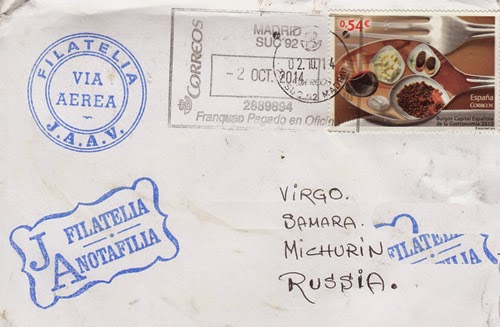 FILATELIA
VIA
AEREA
J.A.A.V.
CORREOS
MADRID
SUC 92
- 2 OCT. 2014
2889894
Franqueo Pagado en Oficina
02.10.14
SUC. 92 MADRID
0,54€
España
CORREOS
Burgos Capital Española
de la Gastronomía 2013
VIRGO.
SAMARA.
MICHURIN
RUSSIA.
JA
FILATELIA
NOTAFILIA
FILATELIA
NOTAFILIA